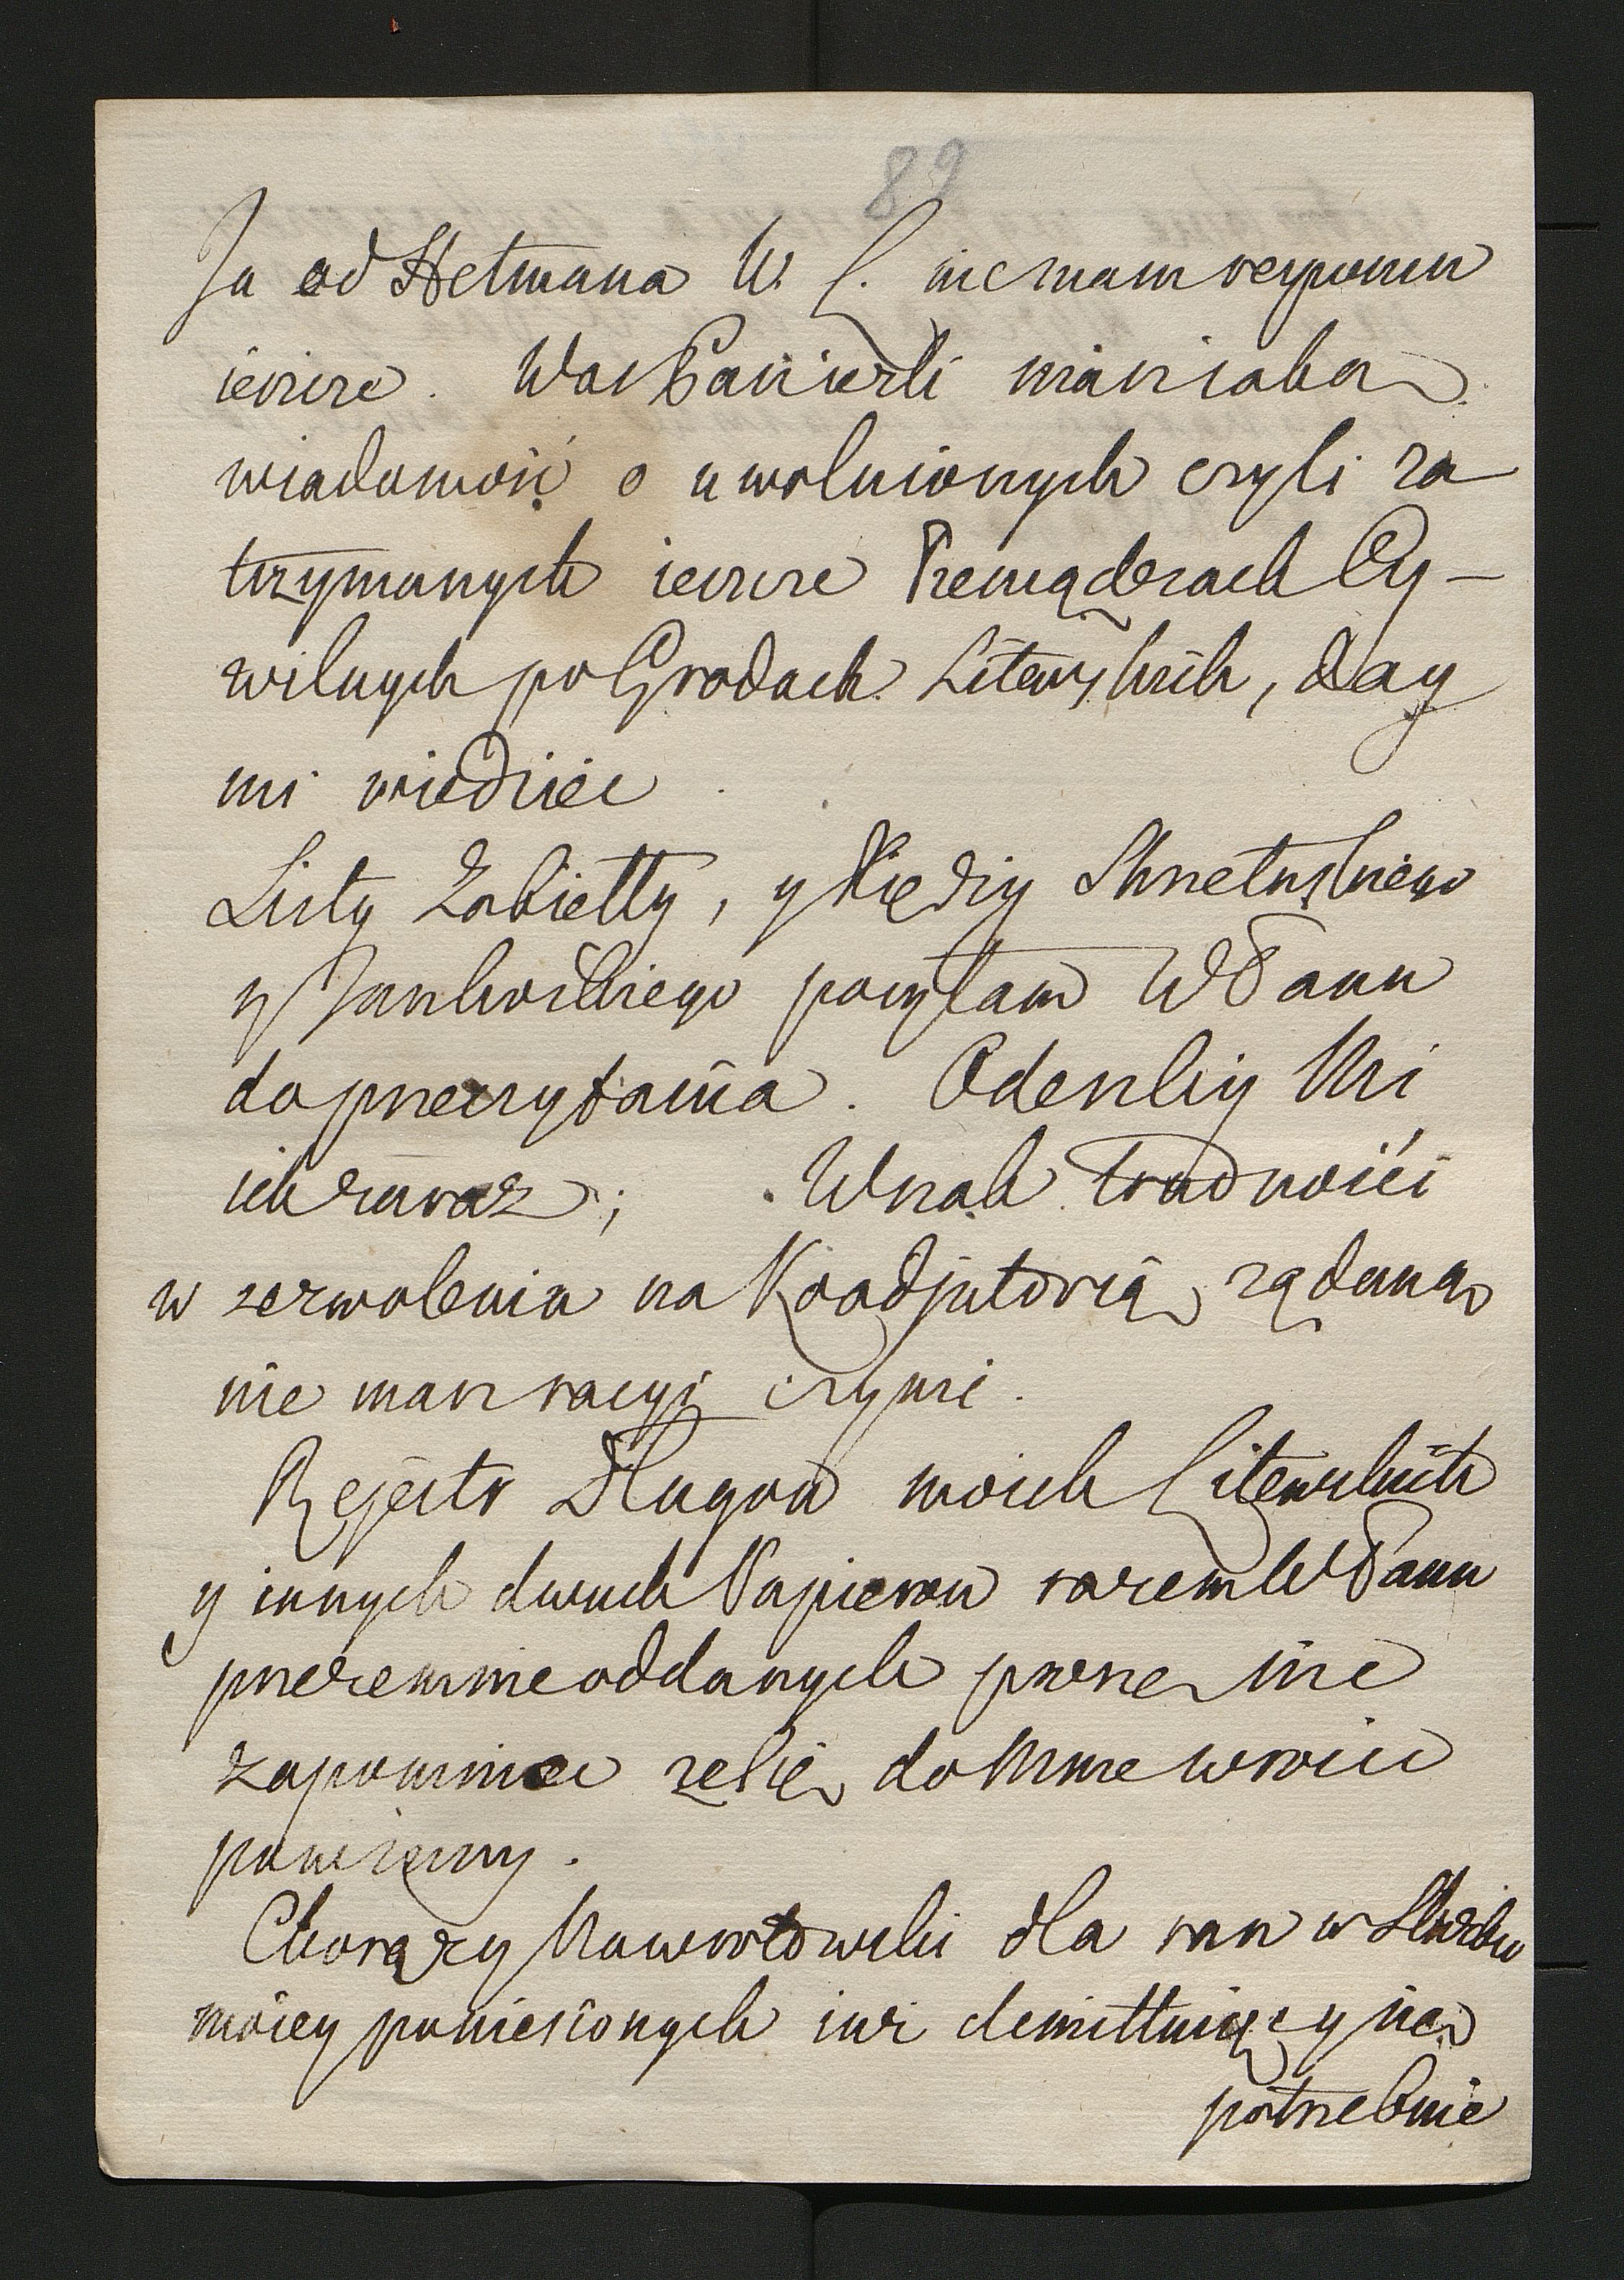 89
Ja od Hetmana W. L. nie mam responsu
ieszcze. WasPan ieżli masz iaką
wiadomość o uwolnionych czyli za
trzymanych ieszcze Pieniądzach Cy-
wilnych po Grodach Litewskich, day
mi wiedzieć
Listy Zabiełły, y Xiędzy Skretuskiego
y Jankowskiego posyłam WPanu
do przeczytania. Odeszliy Mi
ich zaraz; Wszak trudności
w zezwoleniu na Koadjutorią żądaną
nie masz racyi czynić.
Rejestr Długow moich Litewskich
y innych dwuch Papierow razem WPanu
przezemnie oddanych proszę nie
zapominać że się do Mnie wrocić
powinny.
Chorąży Nawrotowski dla ran w Służbie
moiey poniesionych iuż demittuiący się
potrzebnie